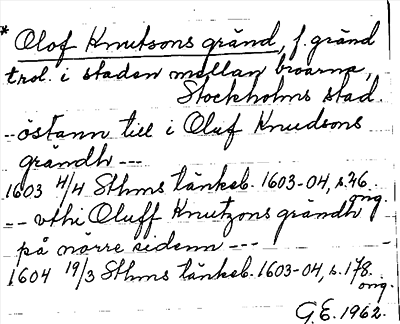 * Olof Knutsons gränd, f. gränd
trol. i staden mellan broarna,
Stockholms stad.
-- östann till i Oluf Knudsons
grändh ---
1603 4/4 Sthms tänkeb. 1603-04, s. 46
orig.
-- vthi Oluff Knutzons grändh
på nörre sidenn ---
1604 19/3 Sthms tänkeb. 1603-04, s. 178.
orig.
G.E. 1962.